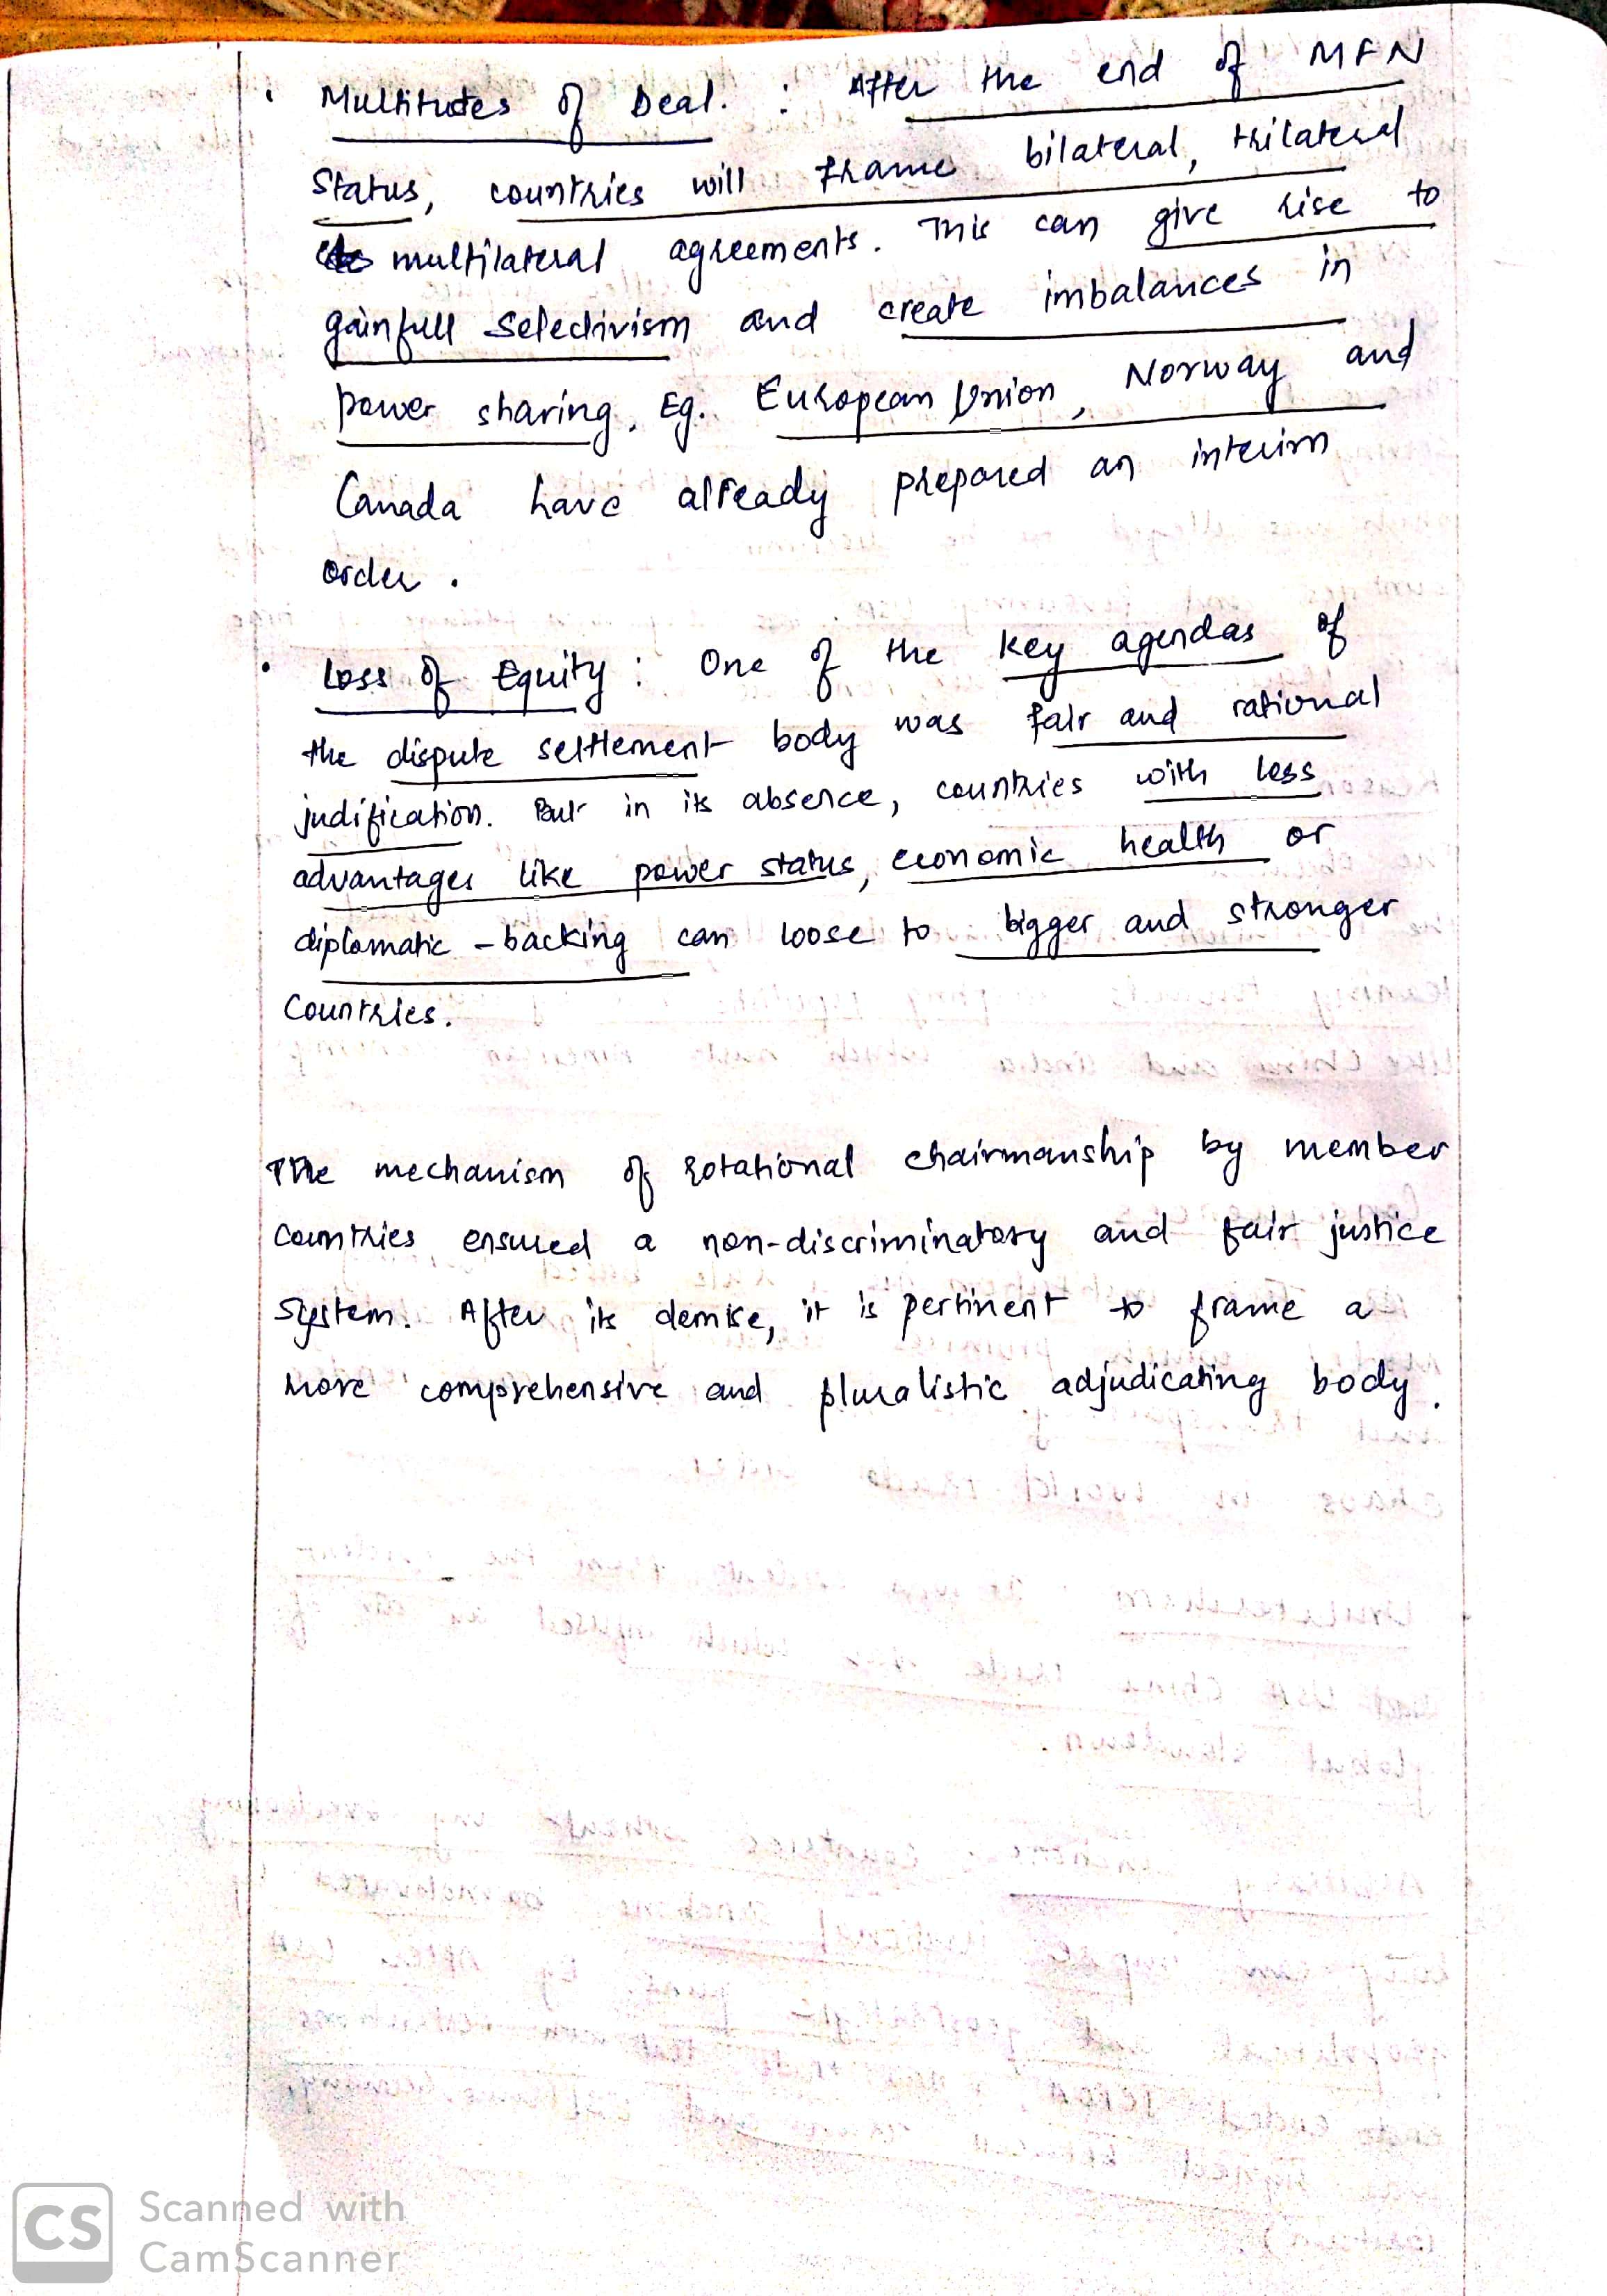 • Multitutes of Deal. : After the end of MFN
Status, countries will frame bilateral, trilateral
multilateral agreements. This can give rise to
gainfull selectivism and create imbalances in
power sharing. Eg. European Union, Norway and
Canada have already prepared an interim
order.
• Loss of Equity : One of the key agendas of
the dispute settlement body was fair and rational
judification. But in its absence, countries with less
advantages like power status, economic health or
diplomatic - backing can loose to bigger and stronger
Countries.
The mechanism of rotational chairmanship by member
countries ensured a non-discriminatory and fair justice
system. After its demise, it is pertinent to frame a
more comprehensive and pluralistic adjudicating body.
CS Scanned with
CamScanner